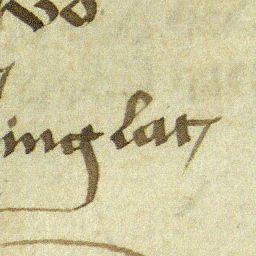 ing lat